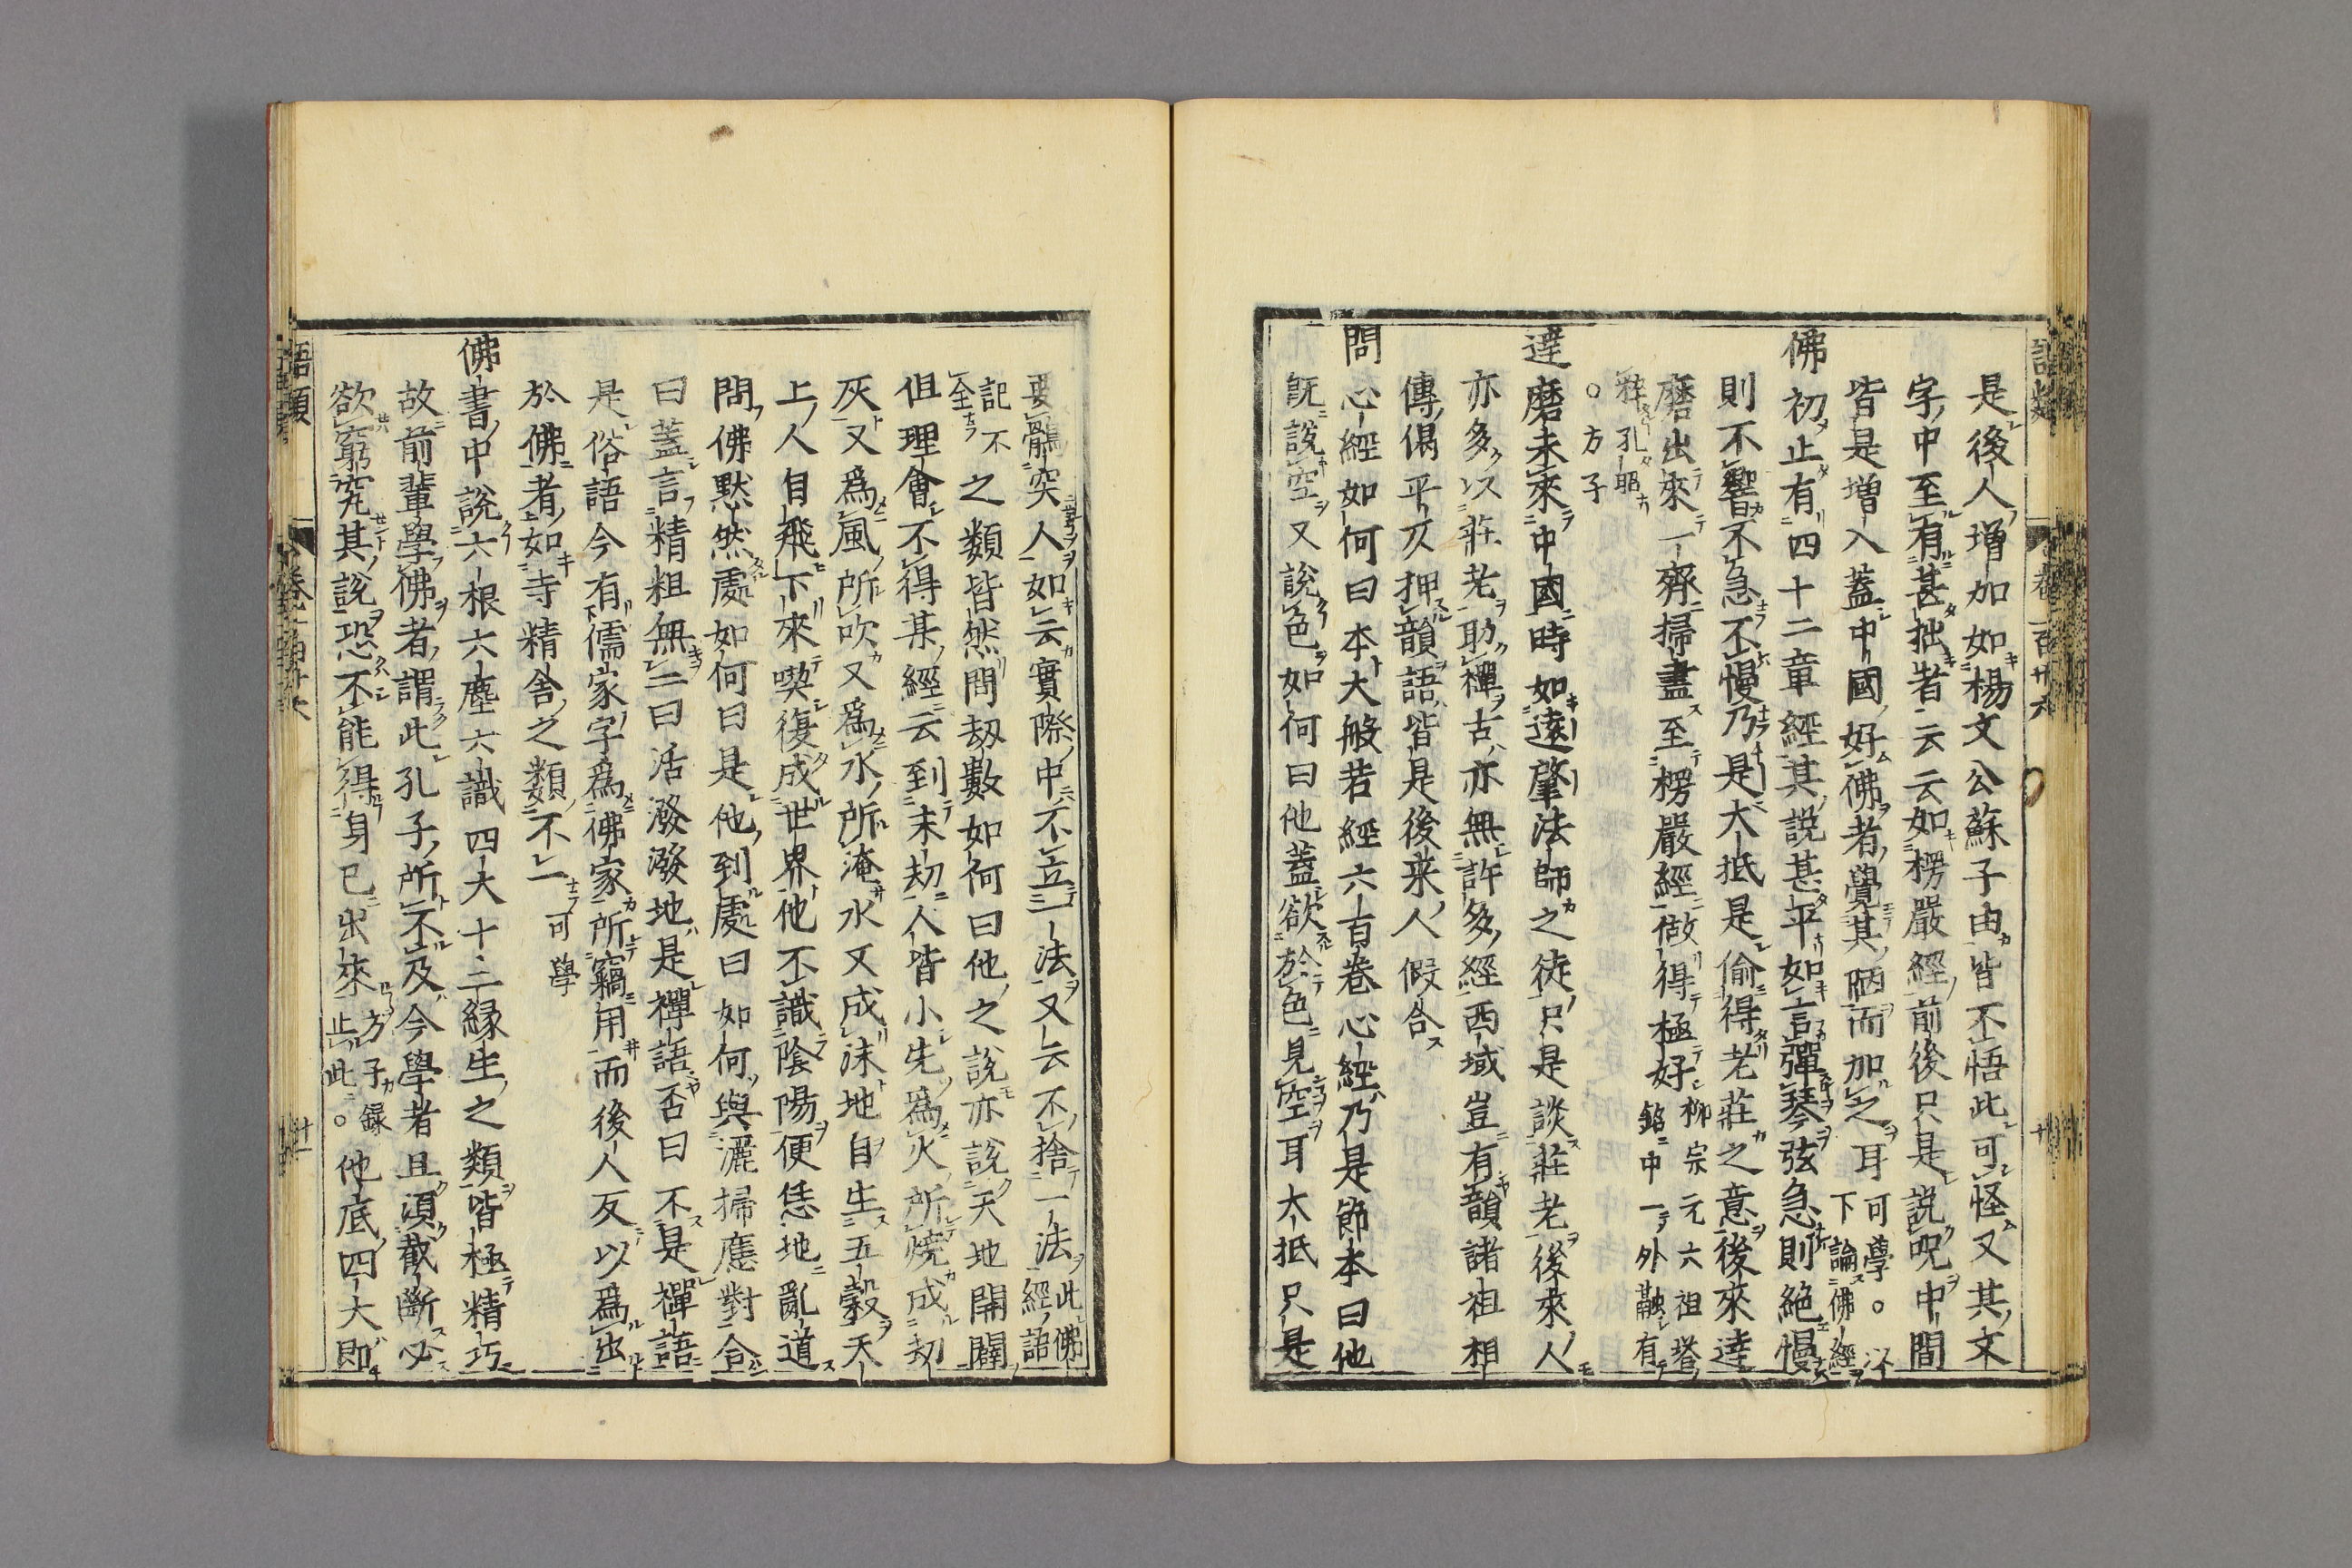 語類 卷一百廿六 十
是後人增加如楊文公蘇子由皆不悟此可怪又其文
字中至有甚拙者云云如楞嚴經前後只是說呪中間
皆是增入蓋中國好佛者覺其陋而加之耳可學。以下論佛經
佛初止有四十二章經其說甚平如言彈琴弦急則絶慢
則不響不急不慢乃是大抵是偷得老莊之意後來達
磨出來一齊掃盡至楞嚴經做得極好柳宗元六祖塔銘中一外融有
粹孔昭
。方子
達磨未來中國時如遠肇法師之徒只是談莊老後來人
亦多以莊老助禪古亦無許多經西域豈有韻諸祖相
傳偈平仄押韻語皆是後來人假合
問心經如何曰本大般若經六百卷心經乃是節本曰他
旣說空又說色如何曰他蓋欲於色見空耳大抵只是
要鶻突人如云實際中不立一法又云不捨一法此佛經語
記不全之類皆然問劫數如何曰他之說亦說天地開闢
但理會不得某經云到末劫人皆小先爲火所燒成劫
灰又爲風所吹又爲水所淹水又成沫地自生五穀天
上人自飛下來喫復成世界他不識陰陽便恁地亂道
問佛默然處如何曰是他到處曰如何與灑掃應對合
曰蓋言精粗無二曰活潑潑地是禪語否曰不是禪語
是俗語今有儒家字爲佛家所竊用而後人反以爲出
於佛者如寺精舍之類不一可學
佛書中說六根六塵六識四大十二緣生之類皆極精巧
故前輩學佛者謂此孔子所不及今學者且須截斷必
欲窮究其說恐不能得身已出來方子錄止此。他底四大即
語類 卷一百廿六 十一